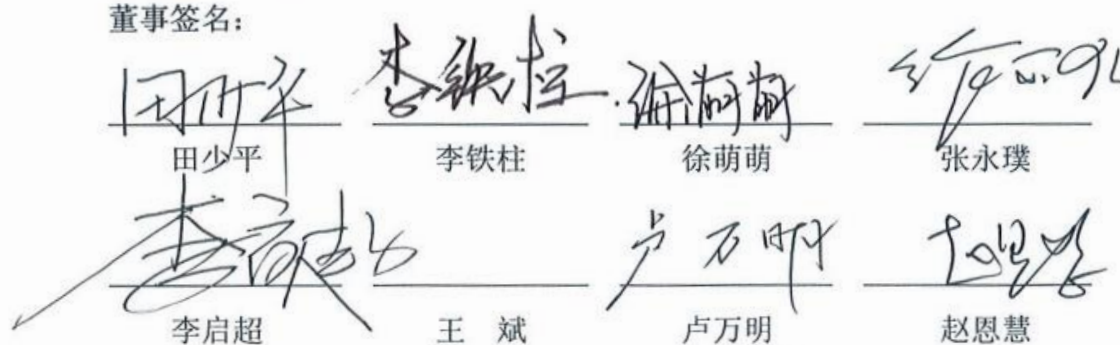 董事签名：
田少平 李铁柱 徐萌萌
田少平 李铁柱 徐萌萌 张永璞
卢万明
李启超 王 斌 卢万明 赵恩慧